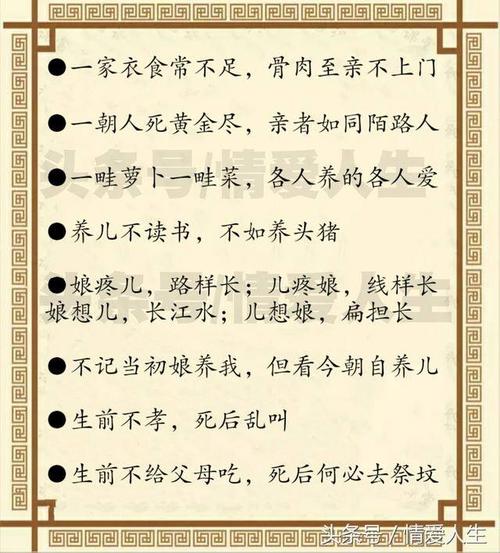 ●一家衣食常不足，骨肉至亲不上门
●一朝人死黄金尽，亲者如同陌路人
●一畦萝卜一畦菜，各人养的各人爱
●养儿不读书，不如养头猪
●娘疼儿，路样长；儿疼娘，线样长
娘想儿，长江水；儿想娘，扁担长
●不记当初娘养我，但看今朝自养儿
●生前不孝，死后乱叫
●生前不给父母吃，死后何必去祭坟
头条号/情爱人生
头条号/情爱人生
头条号／情爱人生